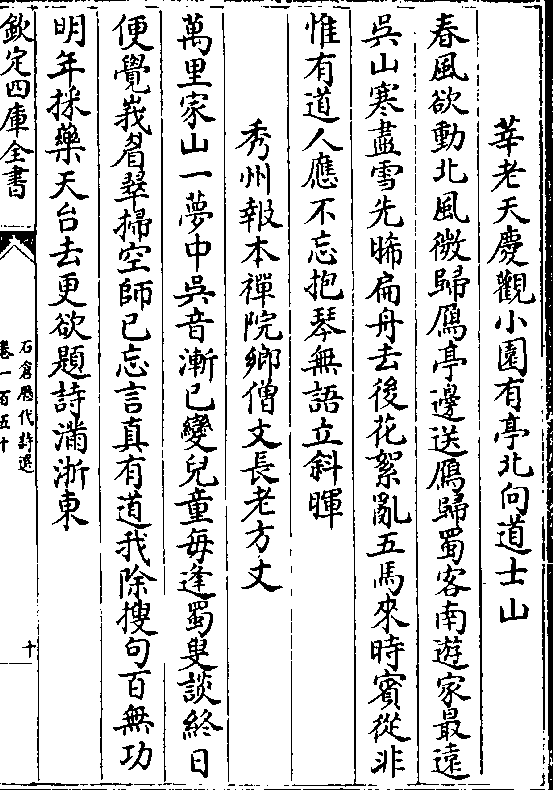 莘老天慶觀小園有亭北向道士山
春風欲動北風微歸鴈亭邊送鴈歸蜀客南遊家最遠
吳山寒盡雪先晞扁舟去後花絮亂五馬來時賓從非
惟有道人應不忘抱琴無語立斜暉
秀州報本禪院鄉僧文長老方丈
萬里家山一夢中吳音漸已變兒童每逢蜀叟談終日
便覺峩眉翠掃空師已忘言真有道我除搜句百無功
明年採藥天台去更欲題詩滿浙東
欽定四庫全書
石倉歷代詩選
卷一百五十
十